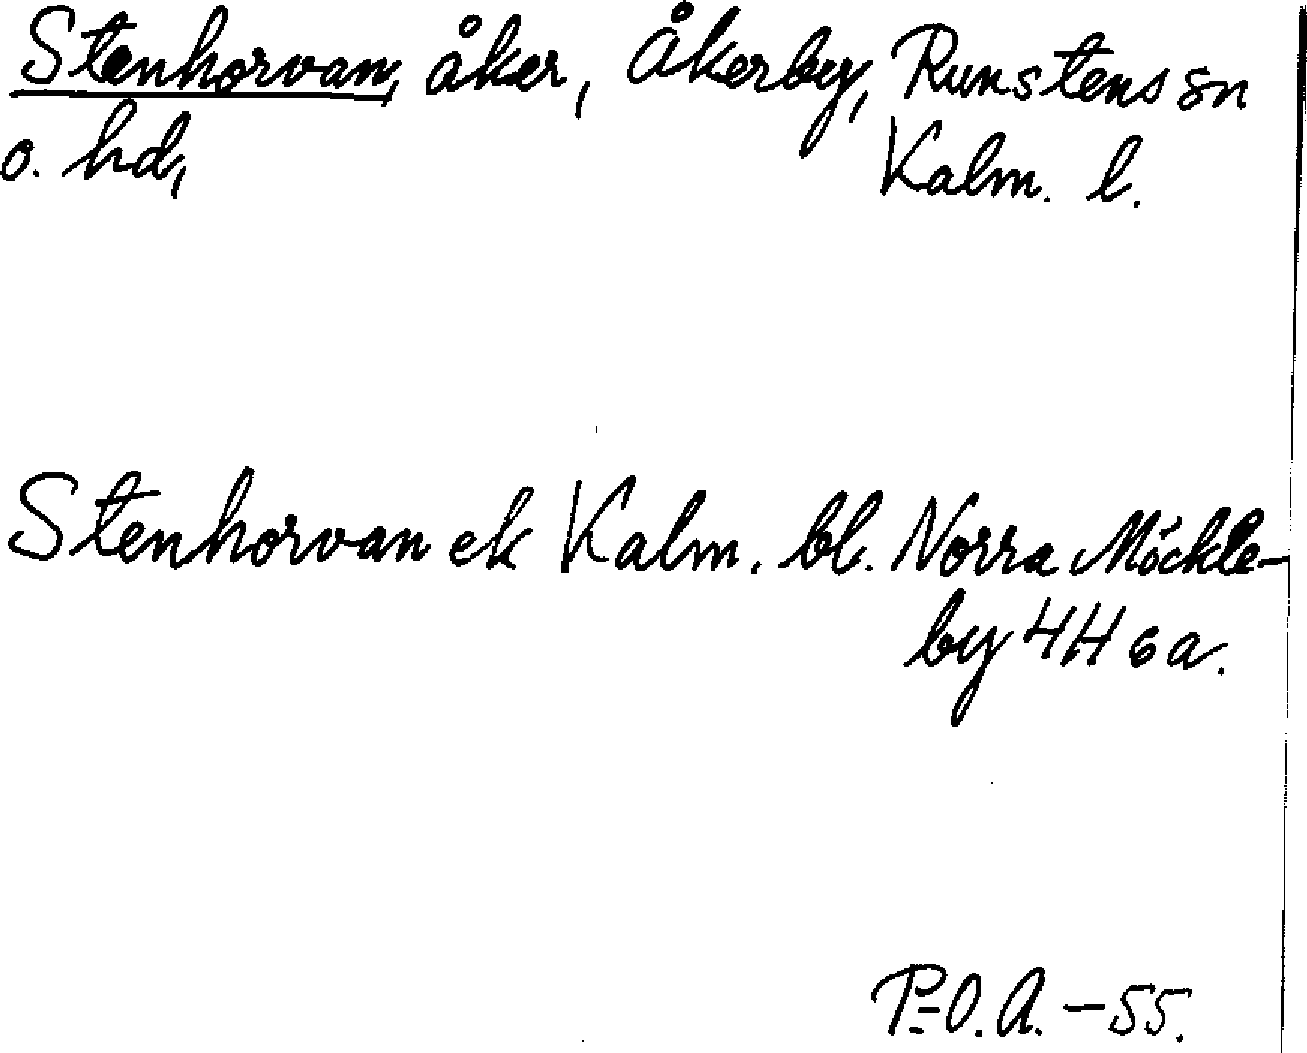 Stenhorvan, åker, Åkerby, Runstens sn
o. hd, Kalm. l.
Stenhorvan ek Kalm. bl. Norra Möckle-
by 4H 6a.
P.-O. A. -55.